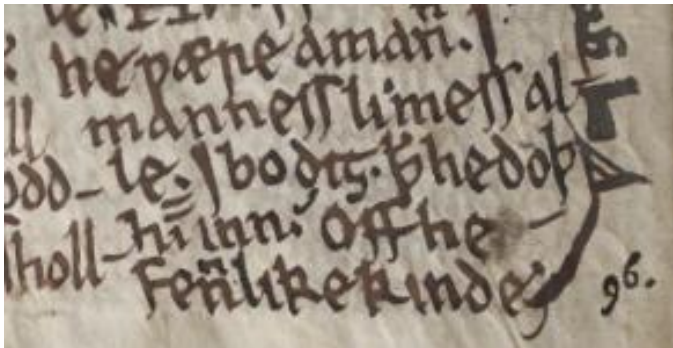 he ƿære aman̄. ⁊
ll manneſſ limeſſ al-
odd- le. ⁊ bodiȝ. ꝥ he doþ
hī inn. Off he
holl- fen̄like kinde
96.